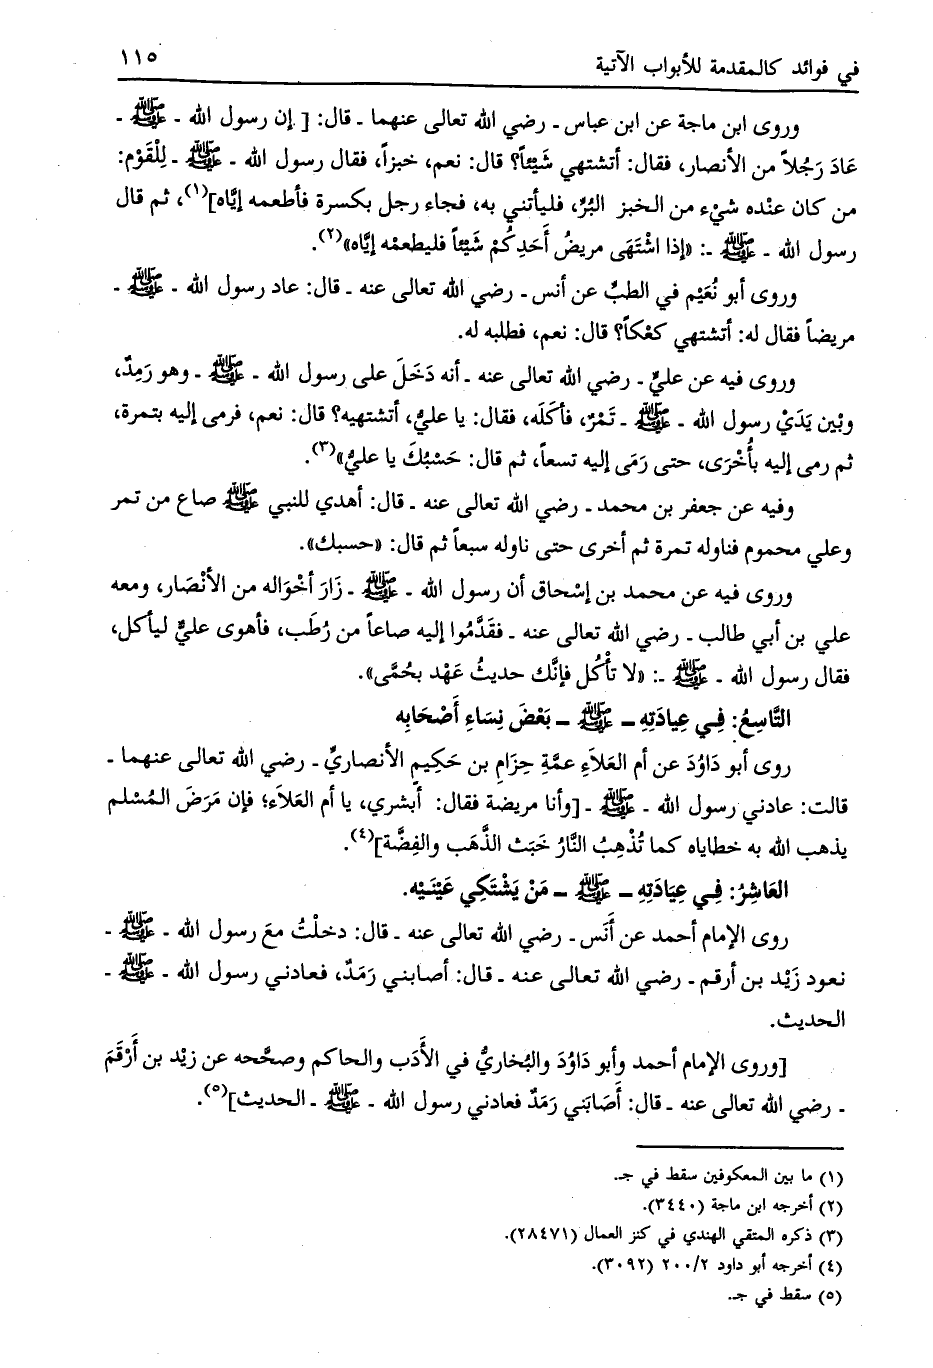 في فوائد كالمقدمة للأبواب الآتية ١١٥
وروى ابن ماجة عن ابن عباس ـ رضي الله تعالى عنهما ـ قال: [ إن رسول الله ـ ﷺ ـ
عَادَ رَجُلاً من الأنصار، فقال: أتشتهي شَيْئاً؟ قال: نعم، خبزاً، فقال رسول الله ـ ﷺ ـ لِلْقَوْم:
من كان عنْده شيْء من الخبز البُرِّ، فليأتني به، فجاء رجل بكسرة فأطعمه إيَّاه](١)، ثم قال
رسول الله ـ ﷺ ـ: «إذا اشْتَهَى مريضُ أَحَدِكُمْ شَيْئاً فليطعمْه إيَّاه»(٢).
وروى أبو نُعَيْم في الطبِّ عن أنس ـ رضي الله تعالى عنه ـ قال: عاد رسول الله ـ ﷺ ـ
مريضاً فقال له: أتشتهي كعْكاً؟ قال: نعم، فطلبه له.
وروى فيه عن عليٍّ ـ رضي الله تعالى عنه ـ أنه دَخَلَ على رسول الله ـ ﷺ ـ وهو رَمِدٌ،
وبْين يَدَيْ رسول الله ـ ﷺ ـ تَمْرٌ، فأكَلَه، فقال: يا عليُّ، أتشتهيه؟ قال: نعم، فرمى إليه بتمرة،
ثم رمى إليه بأُخْرَى، حتى رَمَى إليه تسعاً، ثم قال: حَسْبُكَ يا عليُّ»(٣).
وفيه عن جعفر بن محمد ـ رضي الله تعالى عنه ـ قال: أهدي للنبي ﷺ صاع من تمر
وعلي محموم فناوله تمرة ثم أخرى حتى ناوله سبعاً ثم قال: «حسبك».
وروى فيه عن محمد بن إسْحاق أن رسول الله ـ ﷺ ـ زَارَ أخْوَاله من الأنْصَار، ومعه
علي بن أبي طالب ـ رضي الله تعالى عنه ـ فقَدَّمُوا إليه صاعاً من رُطَب، فأهوى عليٌّ ليأكل،
فقال رسول الله ـ ﷺ ـ: «لا تأْكُل فإنَّك حديثُ عَهْد بحُمَّى».
التَّاسِعُ: فِي عِيادَتِهِ ـ ﷺ ـ بَعْضَ نِسَاءِ أَصْحَابِه
روى أبو دَاوُدَ عن أم العَلاَءِ عمَّةِ حِزَامِ بن حَكِيمٍ الأنصاريِّ ـ رضي الله تعالى عنهما ـ
قالت: عادني رسول الله ـ ﷺ ـ [وأنا مريضة فقال: أبشري، يا أم العَلاَء؛ فإن مَرَضَ المُسْلم
يذهب الله به خطاياه كما تُذْهِبُ النَّارُ خَبَث الذَّهَب والفِضَّة](٤).
العَاشِرُ: فِي عِيَادَتِهِ ـ ﷺ ـ مَنْ يَشْتَكِي عَيْنَيْه.
روى الإمام أحمد عن أَنَس ـ رضي الله تعالى عنه ـ قال: دخلْتُ معَ رسول الله ـ ﷺ ـ
نعود زَيْد بن أرقم ـ رضي الله تعالى عنه ـ قال: أصابني رَمَدٌ، فعادني رسول الله ـ ﷺ ـ
الحديث.
[وروى الإمام أحمد وأبو دَاوُدَ والبُخاريُّ في الأَدَب والحاكم وصحَّحه عن زيْد بن أَرْقَمَ
ـ رضي الله تعالى عنه ـ قال: أَصَابَني رَمَدٌ فعادني رسول الله ـ ﷺ ـ الحديث](٥).
(١) ما بين المعكوفين سقط في جـ.
(٢) أخرجه ابن ماجة (٣٤٤٠).
(٣) ذكره المتقي الهندي في كنز العمال (٢٨٤٧١).
(٤) أخرجه أبو داود ٢٠٠/٢ (٣٠٩٢).
(٥) سقط في جـ.